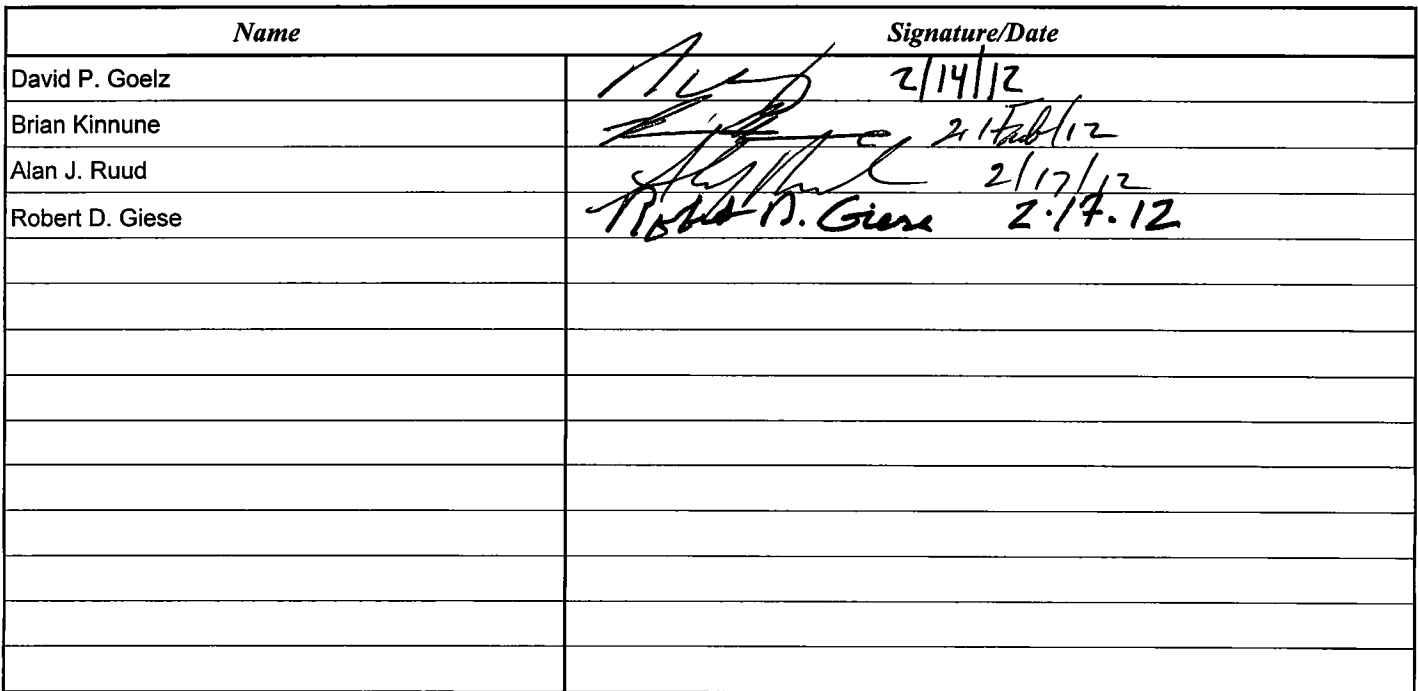 Name Signature/Date
David P. Goelz 2/14/12
Brian Kinnune 21/Feb/12
Alan J. Ruud 2/17/12
Robert D. Giese Robert D. Giese 2.17.12